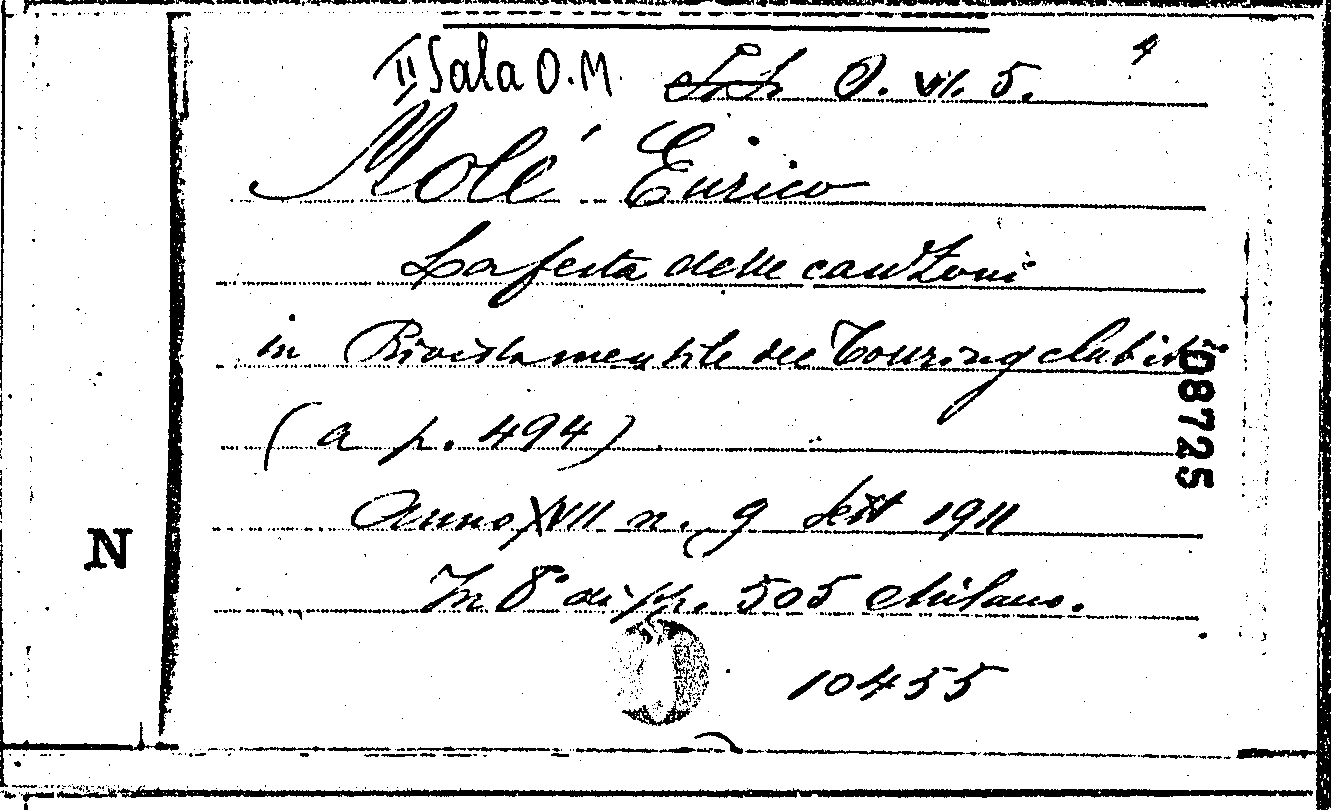 II Sala O.M. O. VII. 5.
Molé Enrico
La festa delle canzoni
in Rivista mensile del Touring club it.
(a p. 494)
Anno XVII n. 9 Sett 1911
In 8° di pp. 505 Milano.
10455
08725
N